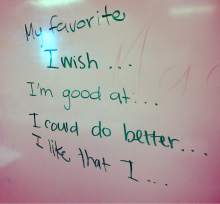 My favorite
I wish ...
I'm good at...
I could do better...
I like that I ...